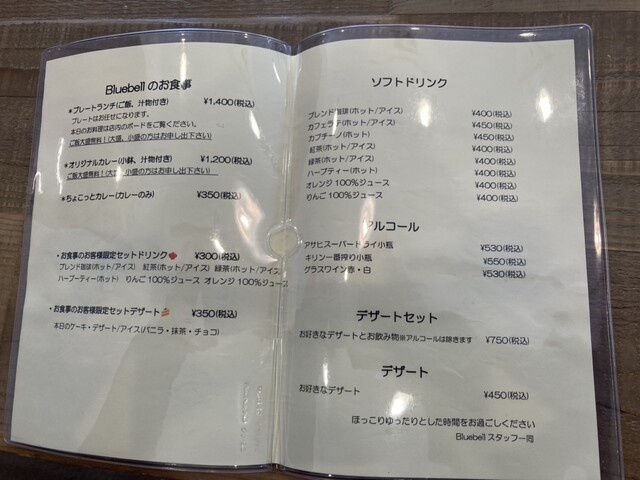 Bluebell のお食事
*プレートランチ(ご飯、汁物付き) ¥1,400(税込)
プレートはお任せになります。
本日のお料理は店内のボードをご覧ください。
ご飯大盛無料!(大盛、小盛の方はお申し出下さい)
*オリジナルカレー(小鉢、汁物付き) ¥1,200(税込)
ご飯大盛無料!(大盛、小盛の方はお申し出下さい)
*ちょこっとカレー(カレーのみ) ¥350(税込)
・お食事のお客様限定セットドリンク ¥300(税込)
ブレンド珈琲(ホット/アイス) 紅茶(ホット/アイス) 緑茶(ホット/アイス)
ハーブティー(ホット) りんご 100%ジュース オレンジ 100%ジュース
・お食事のお客様限定セットデザート ¥350(税込)
本日のケーキ・デザート/アイス(バニラ・抹茶・チョコ)
ソフトドリンク
ブレンド珈琲(ホット/アイス) ¥400(税込)
カフェラテ(ホット/アイス) ¥450(税込)
カプチーノ(ホット) ¥450(税込)
紅茶(ホット/アイス) ¥400(税込)
緑茶(ホット/アイス) ¥400(税込)
ハーブティー(ホット) ¥400(税込)
オレンジ 100%ジュース ¥400(税込)
りんご 100%ジュース ¥400(税込)
アルコール
アサヒスーパードライ小瓶 ¥530(税込)
キリン一番搾り小瓶 ¥550(税込)
グラスワイン赤・白 ¥530(税込)
デザートセット
お好きなデザートとお飲み物※アルコールは除きます ¥750(税込)
デザート
お好きなデザート ¥450(税込)
ほっこりゆったりとした時間をお過ごしください
Bluebell スタッフ一同